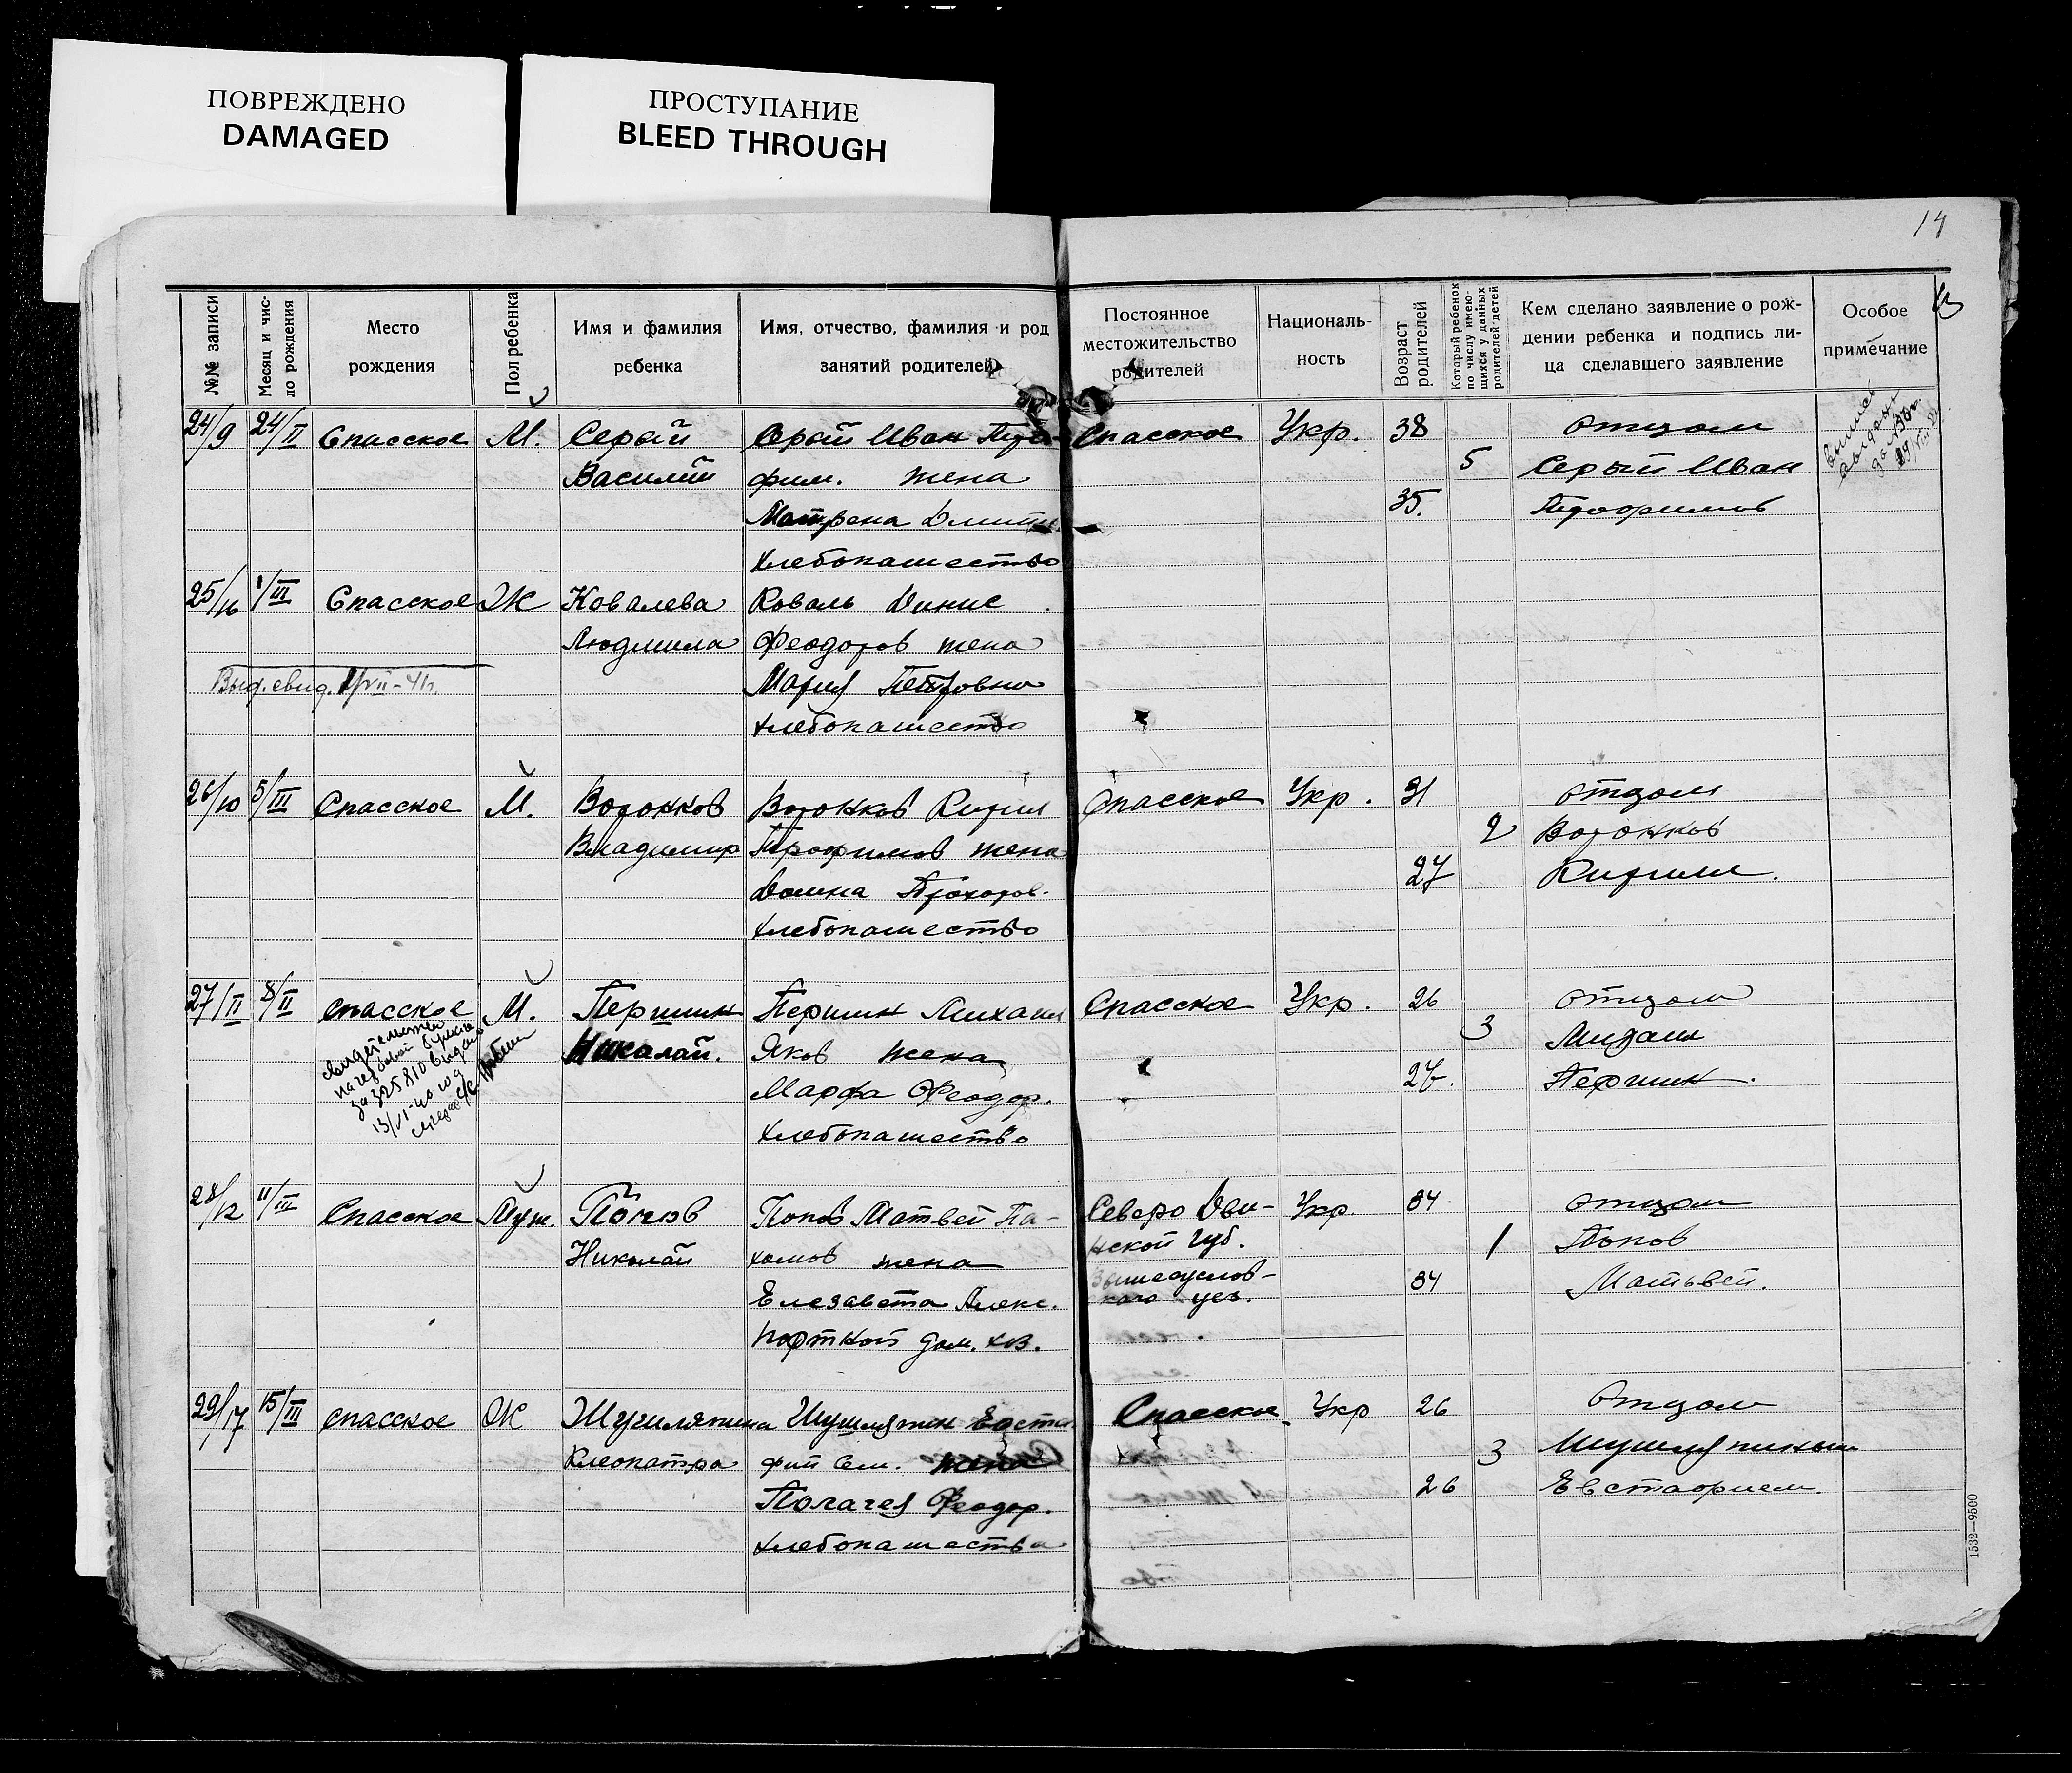 ПОВРЕЖДЕНО
DAMAGED
ПРОСТУПАНИЕ
BLEED THROUGH
14
№№ записи
Месяц и чис-
ло рождения
Место
рождения
Пол ребенка
Имя и фамилия
ребенка
Имя, отчество, фамилия и род
занятий родителей
Постоянное
местожительство
родителей
Националь-
ность
Возраст
родителей
Который ребенок
по числу имею-
щихся у данных
родителей детей
Кем сделано заявление о рож-
дении ребенка и подпись ли-
ца сделавшего заявление
Особое
примечание
24/9 24/II Спасское М. Серый Серый Иван Спасское Укр. 38 отцом
Василий фим. жена 5 Серый Иван
Матрена 35.
хлебопашество
25/16 1/III Спасское Ж Ковалева Коваль Динис
Людмила Феодоров жена
Выд. свид.
Мария Петровна
хлебопашество
26/10 5/III Спасское М. Воронков Воронков Кирил Спасское Укр. 31 отцом
Владимир Трофимов жена 2 Воронков
Домна Прохоров. 27 Кирилл.
хлебопашество
27/II 8/II Спасское М. Першин Першин Михаил Спасское Укр. 26 отцом
Николай. Яков жена 3 Михаил
Марфа Феодор. 27. Першин.
хлебопашество
28/12 11/III Спасское Муж. Попов Попов Матвей Па- Северо Дви- Укр 34 отцом
Николай хомов жена нской губ. 1 Попов
Елезавета Алекс. 34 Матьвей.
кого уез.
портной дом. хоз.
29/17 15/III Спасское Ж Шушляпина Шушляпин Евста Спасское Укр 26 отцом
Клеопатра фий Сем. жена 3 Шушляпиным
Феодор. 26 Евстафием.
хлебопашество
1532—9500